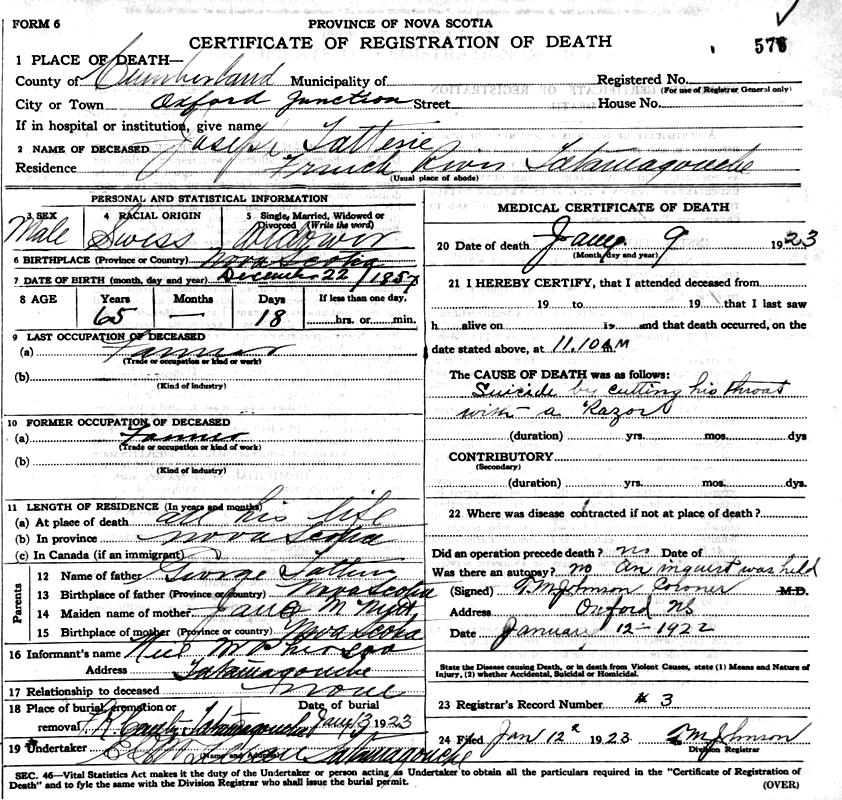 FORM 6
PROVINCE OF NOVA SCOTIA
CERTIFICATE OF REGISTRATION OF DEATH
576
1 PLACE OF DEATH—
County of Cumberland Municipality of
Registered No.
(For use of Registrar General only)
City or Town Oxford Junction Street
House No.
If in hospital or institution, give name
2 NAME OF DECEASED Joseph Tattrie
Residence French River Tatamagouche
(Usual place of abode)
PERSONAL AND STATISTICAL INFORMATION
3 SEX Male
4 RACIAL ORIGIN Swiss
5 Single, Married, Widowed or Divorced (Write the word) Widower
6 BIRTHPLACE (Province or Country) Nova Scotia
7 DATE OF BIRTH (month, day and year) December 22 / 1857
8 AGE Years 65 Months — Days 18 If less than one day, hrs. or min.
9 LAST OCCUPATION OF DECEASED
(a) Farmer
(Trade or occupation or kind or work)
(b)
(Kind of industry)
10 FORMER OCCUPATION OF DECEASED
(a) Farmer
(Trade or occupation or kind of work)
(b)
(Kind of industry)
11 LENGTH OF RESIDENCE (In years and months)
(a) At place of death all his life
(b) In province Nova Scotia
(c) In Canada (if an immigrant)
Parents
12 Name of father George
13 Birthplace of father (Province or country) Nova Scotia
14 Maiden name of mother Jane
15 Birthplace of mother (Province or country) Nova Scotia
16 Informant's name
Address Tatamagouche
17 Relationship to deceased None
18 Place of burial, cremation or removal Tatamagouche
Date of burial Jany 1923
19 Undertaker Tatamagouche
(Name and Address)
MEDICAL CERTIFICATE OF DEATH
20 Date of death Jany 9 1923
(Month, day and year)
21 I HEREBY CERTIFY, that I attended deceased from
19 to 19 that I last saw
h alive on 19 and that death occurred, on the
date stated above, at 11.10 AM m.
The CAUSE OF DEATH was as follows:
Suicide by cutting his throat
with a Razor
(duration) yrs. mos. dys
CONTRIBUTORY
(Secondary)
(duration) yrs. mos. dys.
22 Where was disease contracted if not at place of death?
Did an operation precede death? no Date of
Was there an autopsy? no An inquest was held
(Signed) T M Johnson Coroner M.D.
Address Oxford NS
Date January 12 - 1922
State the Disease causing Death, or in death from Violent Causes, state (1) Means and Nature of
Injury, (2) whether Accidental, Suicidal or Homicidal.
23 Registrar's Record Number 3
24 Filed Jan 12 1923 T M Johnson
Division Registrar
SEC. 46—Vital Statistics Act makes it the duty of the Undertaker or person acting as Undertaker to obtain all the particulars required in the "Certificate of Registration of
Death" and to fyle the same with the Division Registrar who shall issue the burial permit.
(OVER)